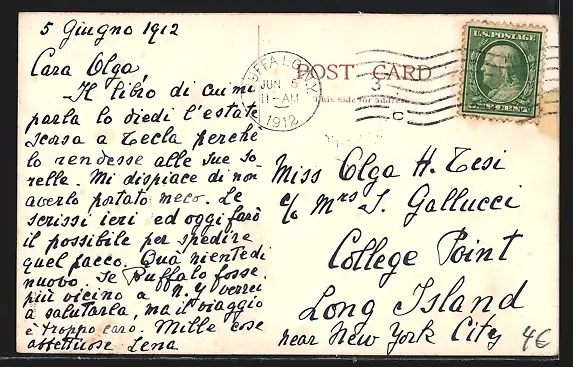 5 Giugno 1912
Cara Olga,
Il libro di cui mi
parla lo diedi l'estate
scorsa a Tecla perchè
lo rendesse alle sue so-
relle. Mi dispiace di non
averlo portato meco. Le
scrissi ieri ed oggi farò
il possibile per spedire
quel pacco. Quà niente di
nuovo. Se Buffalo fosse
più vicino a N.Y. verrei
a salutarla, ma il viaggio
è troppo caro. Mille cose
affettuose Lena
BUFFALO, N.Y.
JUN 5
11-AM
1912
3
C
POST CARD
This side for address
U.S. POSTAGE
Miss Olga H. Tesi
c/o Mrs J. Gallucci
College Point
Long Island
near New York City
4€